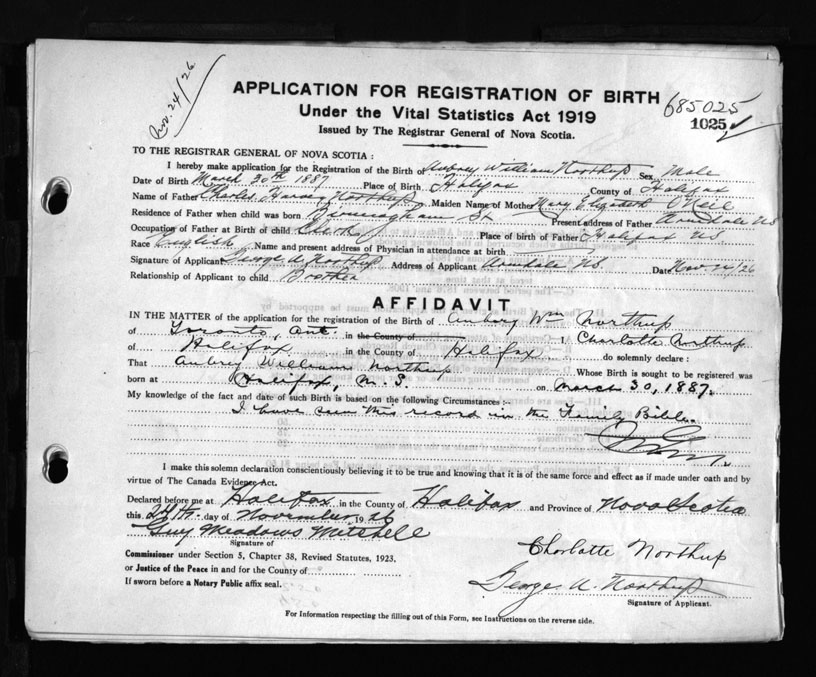 Nov. 24/26
APPLICATION FOR REGISTRATION OF BIRTH
685025
Under the Vital Statistics Act 1919
1025
Issued by The Registrar General of Nova Scotia.
TO THE REGISTRAR GENERAL OF NOVA SCOTIA :
I hereby make application for the Registration of the Birth of Aubrey William Northup Sex Male
Date of Birth March 30th 1887 Place of Birth Halifax County of Halifax
Name of Father Charles Northup Maiden Name of Mother Mary Elizabeth O'Neil
Residence of Father when child was born Birmingham St Present address of Father Armdale NS
Occupation of Father at Birth of child Clerk Place of Birth of Father Halifax NS
Race English Name and present address of Physician in attendance at birth
Signature of Applicant George A Northup Address of Applicant Armdale NS. Date Nov 24/26
Relationship of Applicant to child Brother
AFFIDAVIT
IN THE MATTER of the application for the registration of the Birth of Aubrey Wm Northup
of Toronto, Ont. in the County of I, Charlotte Northup
of Halifax in the County of Halifax do solemnly declare :
That Aubrey William Northup Whose Birth is sought to be registered was
born at Halifax, N.S. on March 30, 1887.
My knowledge of the fact and date of such Birth is based on the following Circumstances :-
I have seen this record in the Family Bible.
I make this solemn declaration conscientiously believing it to be true and knowing that it is of the same force and effect as if made under oath and by
virtue of The Canada Evidence Act.
Declared before me at Halifax in the County of Halifax and Province of Nova Scotia
this 24th. day of November 1926
Guy Meadows Mitchell
Signature of
Commissioner under Section 5, Chapter 38, Revised Statutes, 1923,
or Justice of the Peace in and for the County of
If sworn before a Notary Public affix seal.
Charlotte Northup
George A. Northup
Signature of Applicant.
For Information respecting the filling out of this Form, see Instructions on the reverse side.